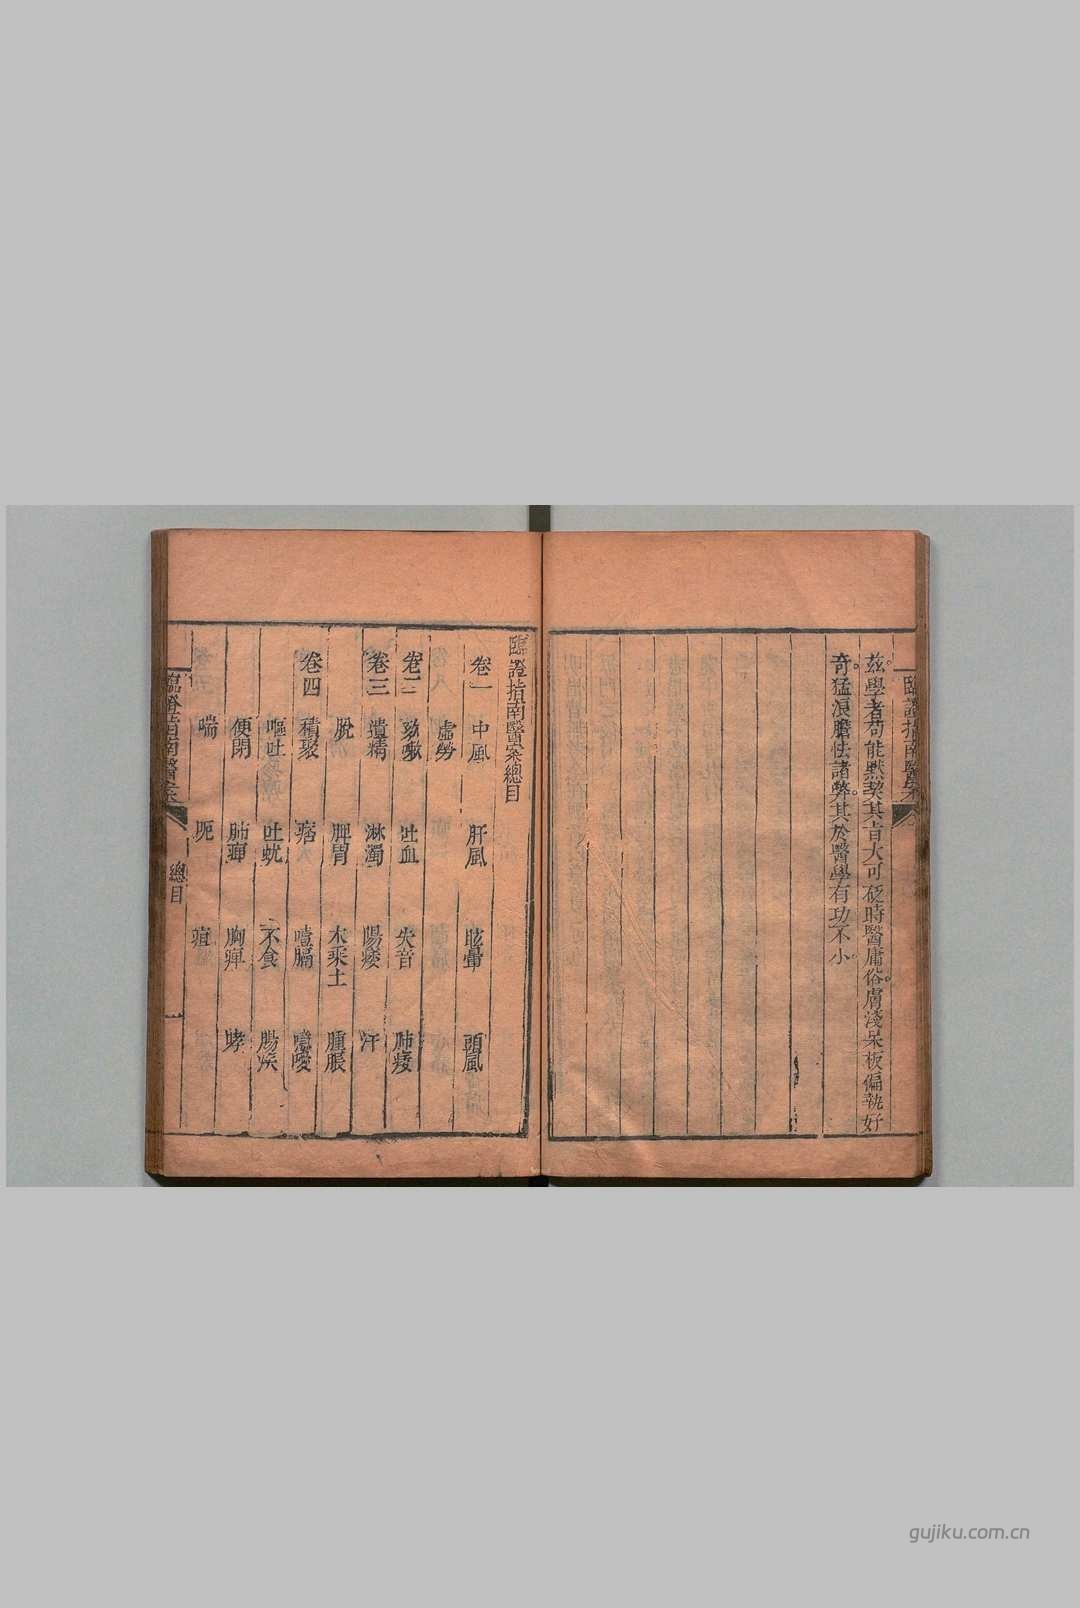 茲學者苟能默契其旨大可砭時醫庸俗膚淺呆板偏執好
奇猛浪膽怯諸弊其於醫學有功不小
臨證指南醫案
臨證指南醫案總目
卷一 中風 肝風 眩暈 頭風
虛勞
卷二 欬嗽 吐血 失音 肺痿
卷三 遺精 淋濁 陽痿 汗
脫 脾胃 木乘土 腫脹
卷四 積聚 痞 噎膈 噫噯
嘔吐 吐蚘 不食 腸痹
便閉 肺痹 胸痹 哮
喘 呃 疸
臨證指南醫案 總目 一
gujiku.com.cn